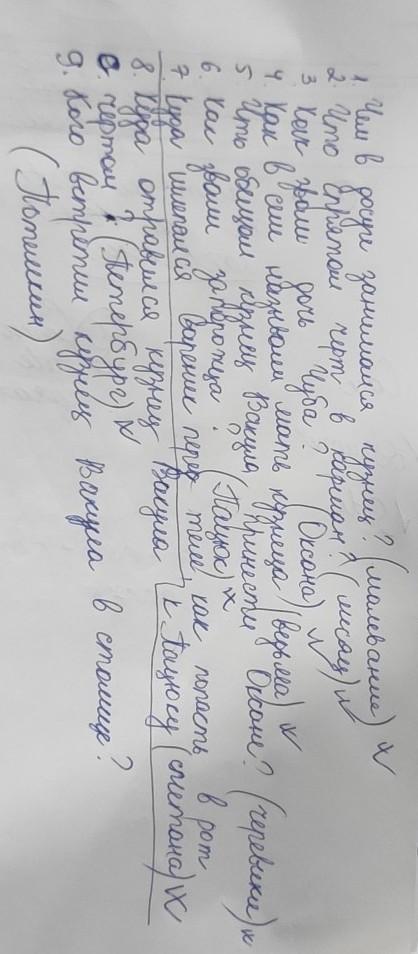 1. Чем в досуг занимался кузнец? (малевание)
2. Что спрятал черт в карман? (месяц)
3 Как звали дочь Чуба? (Оксана)
4. Как в селе называли мать кузнеца? (ведьма)
5 Что обещал кузнец Вакула принести Оксане? (черевики)
6. Как звали запорожца? (Пацюк)
7 Куда шмякался вареник перед тем как попасть в рот
к Пацюку (сметана)
8. Куда отправился кузнец Вакула
с чертом? (Петербург)
9. Кого встретил кузнец Вакула в столице?
(Потемкин)